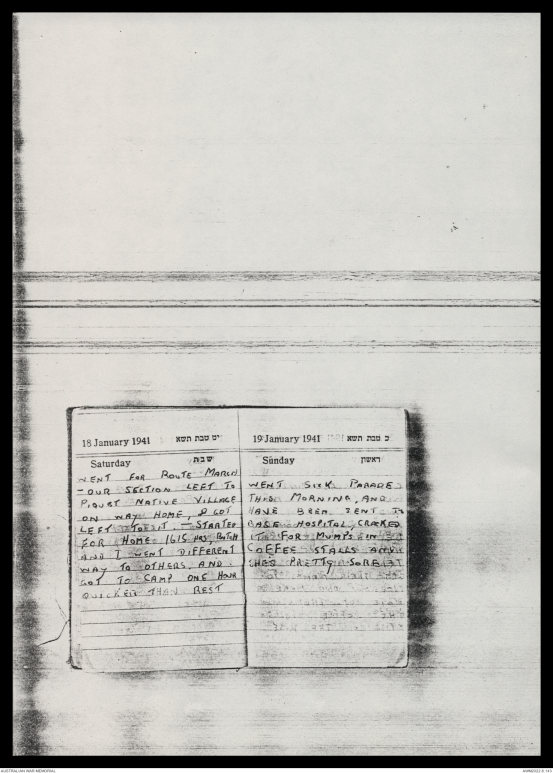 18 January 1941 יט טבת תשא
Saturday שבת
WENT FOR ROUTE MARCH
- OUR SECTION LEFT TO
NATIVE VILLAGE
ON WAY HOME, & GOT
LEFT TO IT. - STARTED
FOR HOME 1615 HRS, BUTCH
AND I WENT DIFFERENT
WAY TO OTHERS, AND
GOT TO CAMP ONE HOUR
QUICKER THAN REST
19 January 1941 כ טבת תשא
Sunday ראשון
WENT SICK PARADE
THIS MORNING, AND
HAVE BEEN SENT TO
BASE HOSPITAL, CRACKED
IT FOR MUMPS IN
COFFEE STALLS
PRETTY SORE
AUSTRALIAN WAR MEMORIAL